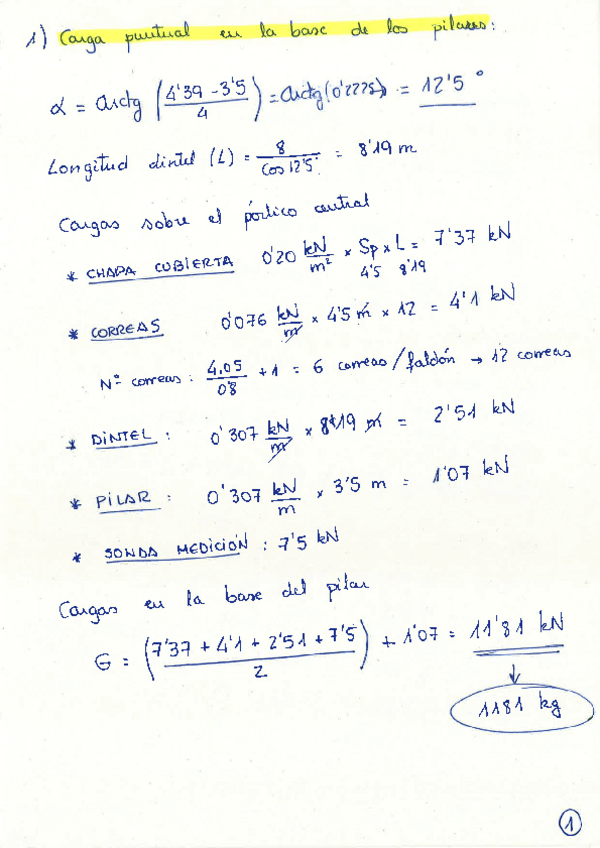 1) Carga puntual en la base de los pilares:
α = arctg (4'39 - 3'5 / 4) = arctg (0'2225) = 12'5°
Longitud dintel (L) = 8 / cos 12'5 = 8'19 m
Cargas sobre el pórtico central
* CHAPA CUBIERTA 0'20 kN/m² × Sp × L = 7'37 kN
4'5 8'19
* CORREAS 0'076 kN/m × 4'5 m × 12 = 4'1 kN
Nº correas : 4.05 / 0'8 + 1 = 6 correas / faldón → 12 correas
* DINTEL : 0'307 kN/m × 8'19 m = 2'51 kN
* PILAR : 0'307 kN/m × 3'5 m = 1'07 kN
* SONDA MEDICIÓN : 7'5 kN
Cargas en la base del pilar
G = (7'37 + 4'1 + 2'51 + 7'5 / 2) + 1'07 = 11'81 kN
↓
1181 kg
1